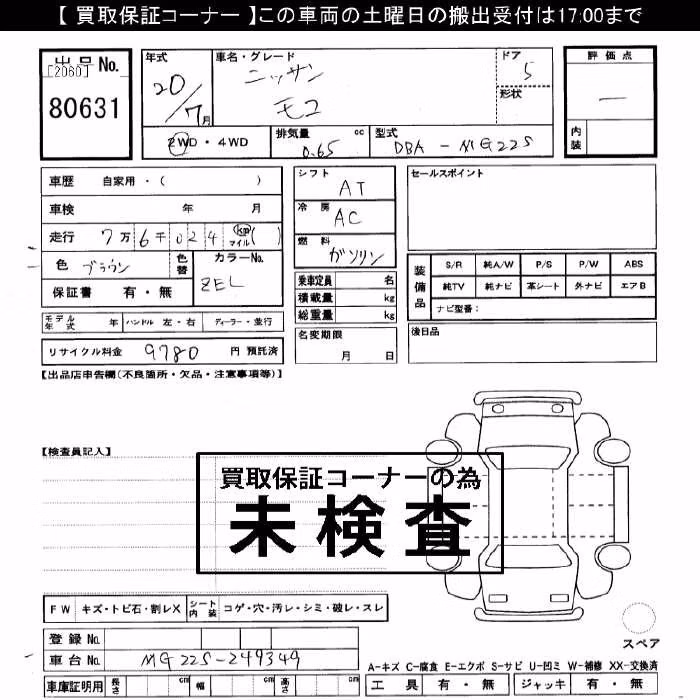 【 買取保証コーナー 】この車両の土曜日の搬出受付は17:00まで
出品No.
[2060]
80631
年式
20/7月
車名・グレード
ニッサン
モコ
ドア
5
形状
評価点
—
内装
2WD・4WD
排気量 cc
0.65
型式
DBA - MG22S
車歴 自家用・( )
車検 年 月
走行 7万6千024 km マイル ( )
色 ブラウン
色替
カラーNo.
ZEL
保証書 有・無
モデル年式 年 ハンドル 左・右 ディーラー・並行
リサイクル料金 9780 円 預託済
シフト
AT
冷房
AC
燃料
ガソリン
乗車定員 名
積載量 kg
総重量 kg
名変期限
月 日
セールスポイント
装備品
S/R 純A/W P/S P/W ABS
純TV 純ナビ 革シート 外ナビ エアB
ナビ型番:
後日品
【出品店申告欄(不良箇所・欠品・注意事項等)】
【検査員記入】
買取保証コーナーの為
未検査
FW キズ・トビ石・割レX シート内装 コゲ・穴・汚レ・シミ・破レ・スレ
登録No.
車台No. MG22S-249349
車庫証明用 長さ cm 幅 cm 高さ cm
スペア
A-キズ C-腐食 E-エクボ S-サビ U-凹ミ W-補修 XX-交換済
工具 有・無 ジャッキ 有・無